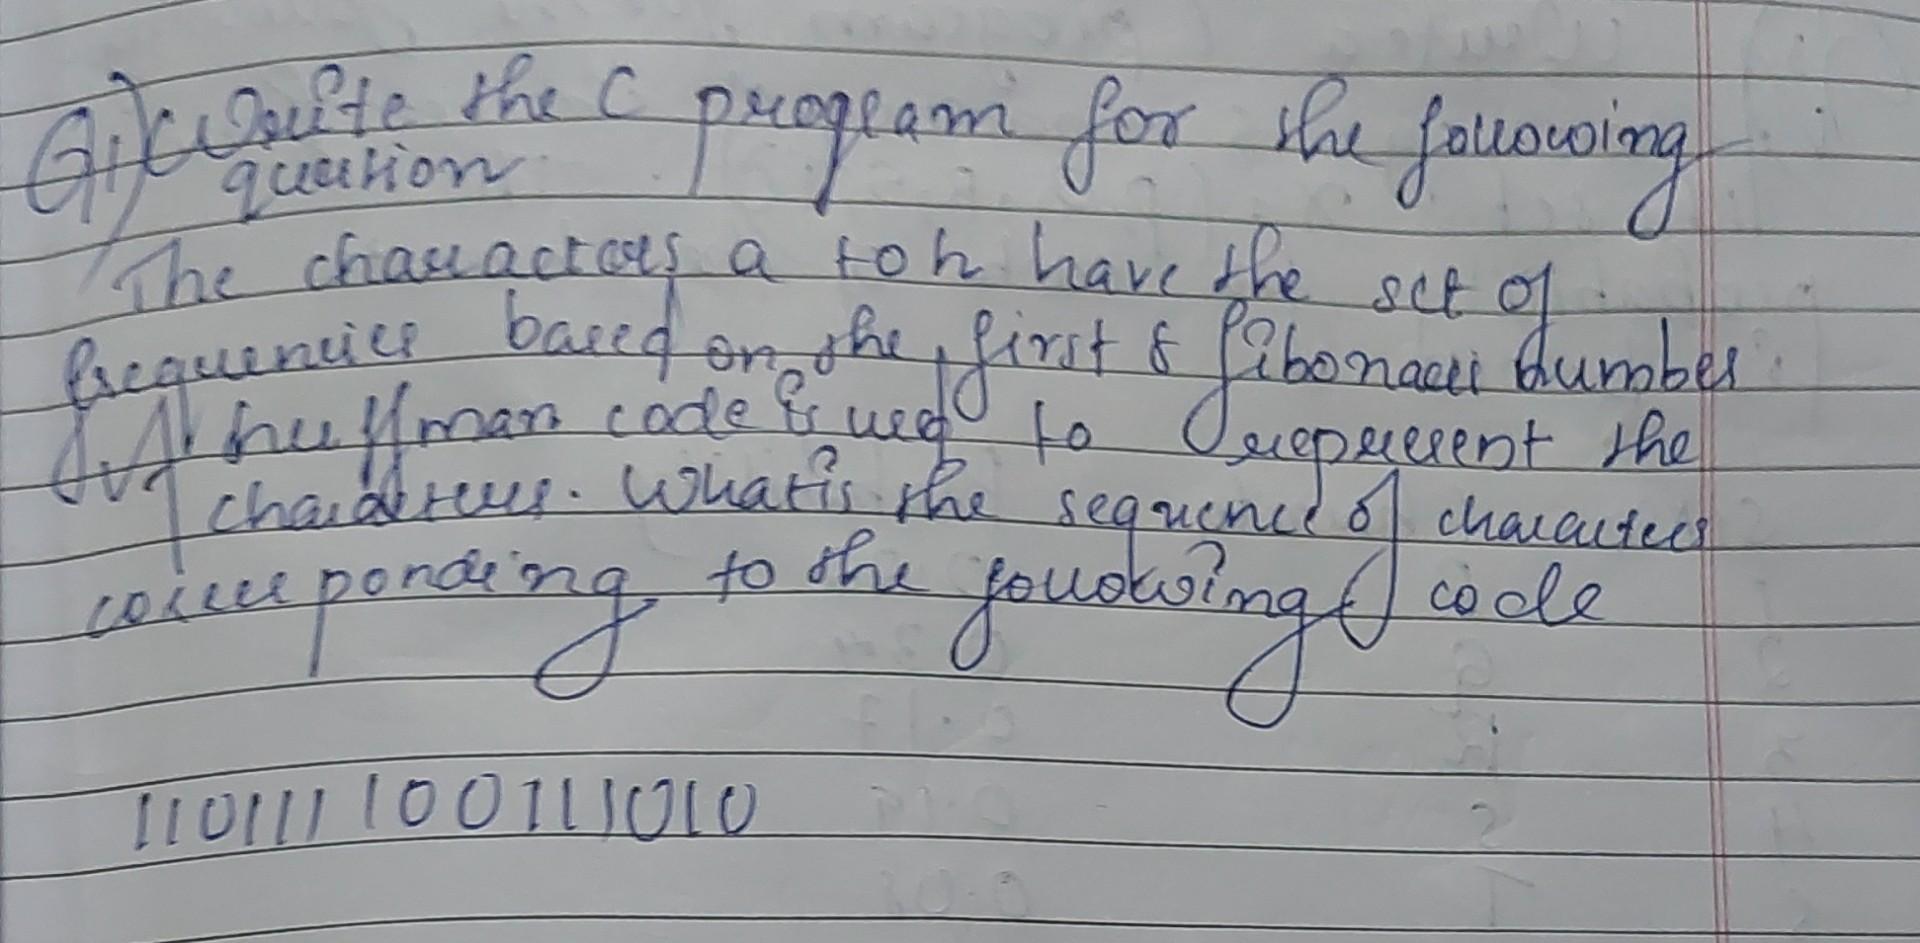 Q.1) Write the C program for the following
question
The characters a to h have the set of
frequencies based on the first 8 fibonacci number
A huffman code is used to represent the
characters. What is the sequence of characters
corresponding to the following code
110111100111010